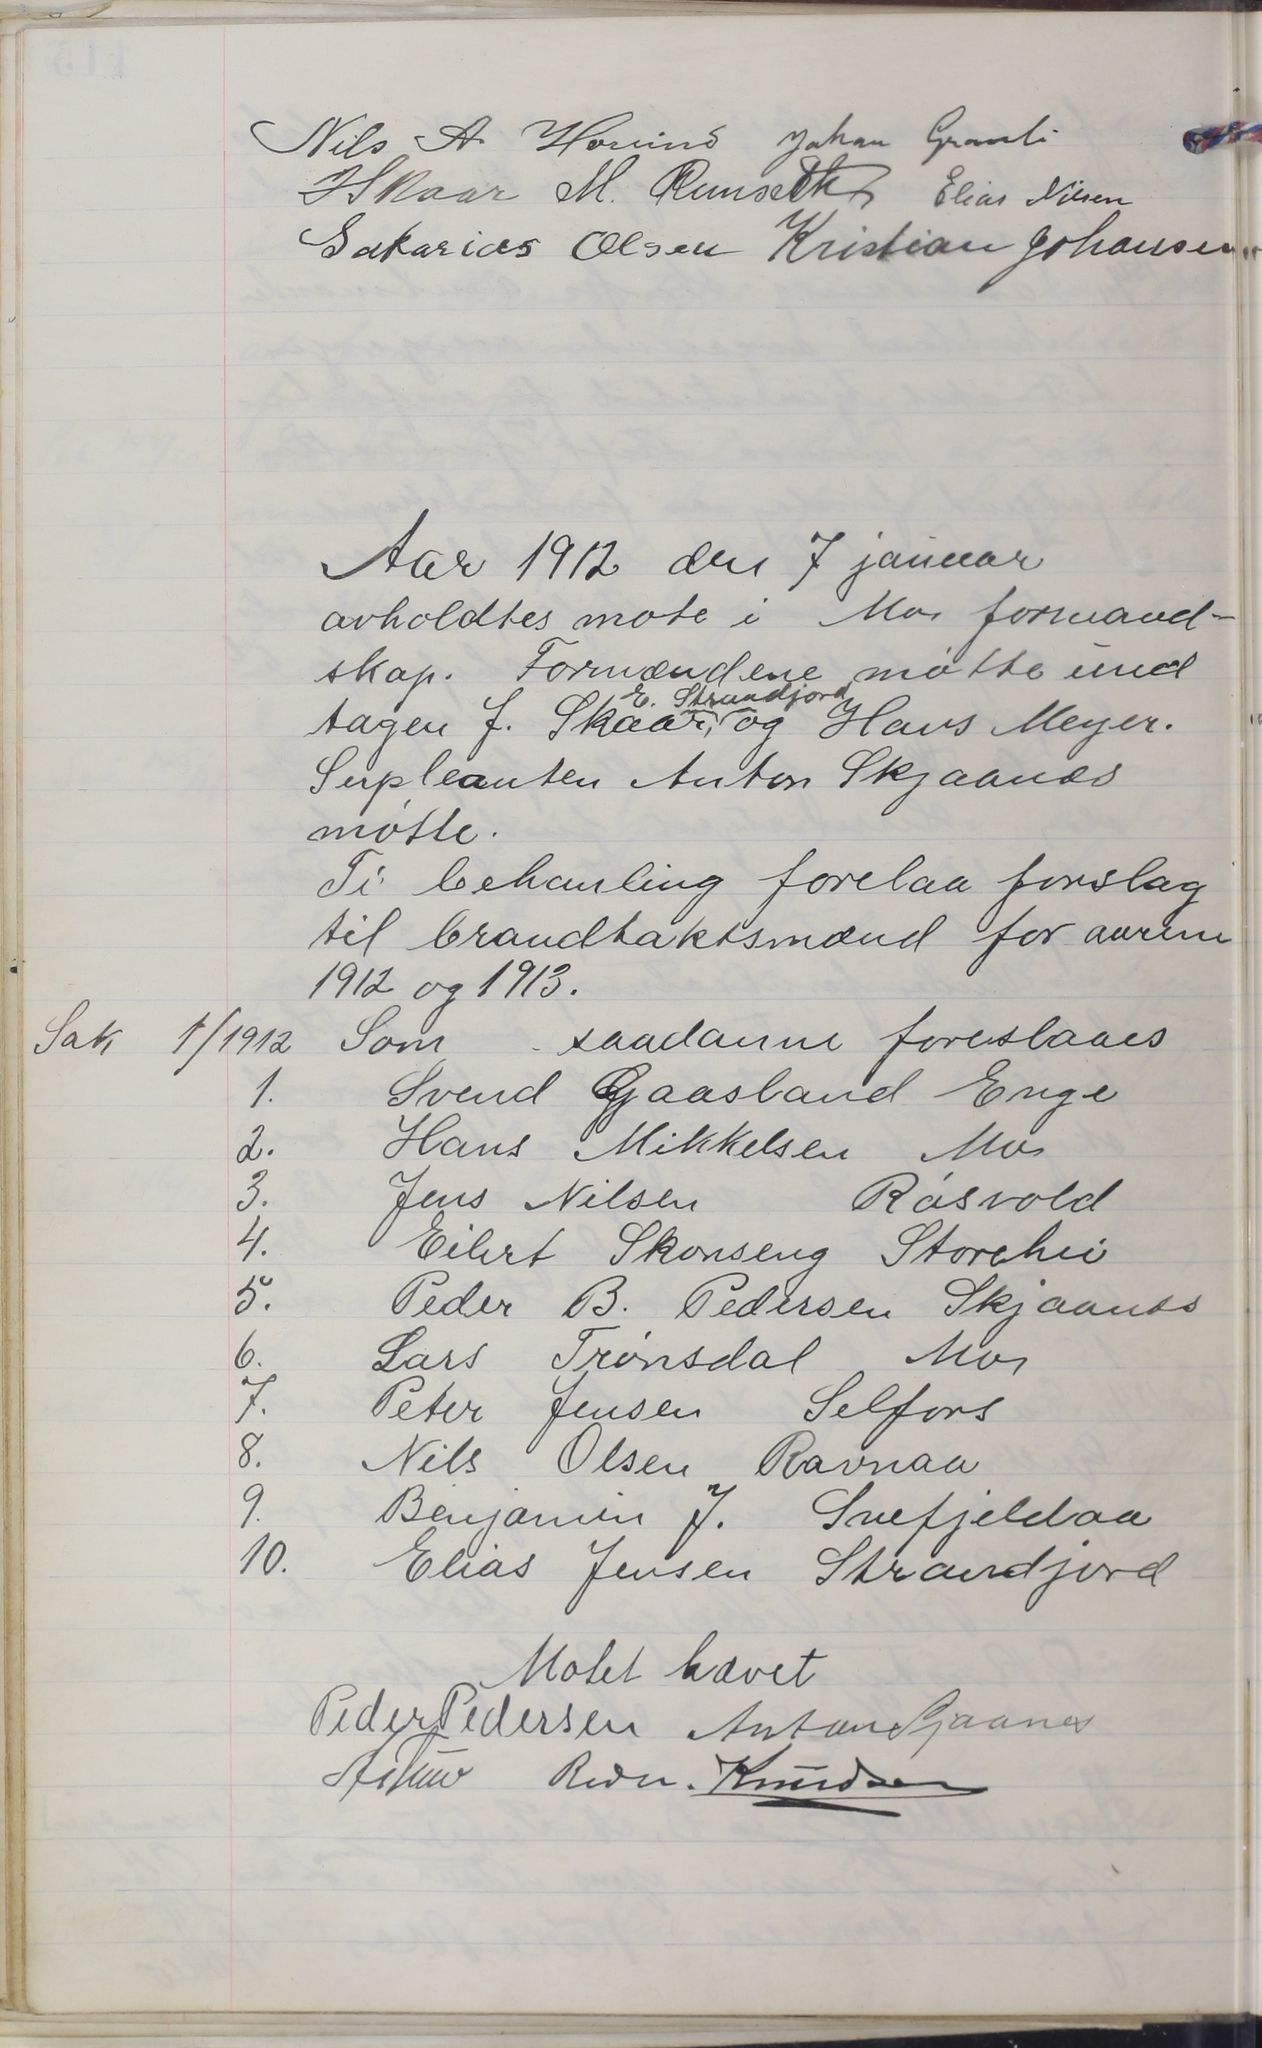 Nils A. Hovind Johan Granli
J Skaar M. Runseth Elias Nilsen
Sakarias Olsen Kristian Johansen
Aar 1912 den 7 januar
avholdtes møte i Mo formand-
skap. Formændene møtte und
E. Strandjord
tagen J. Skaar, og Hans Meyer.
Supleanten Anton Skjaanes
møtte.
Ti behanling forelaa forslag
til brandtakstmænd for aarene
1912 og 1913.
Sak 1/1912 Som saadanne foreslaaes
1. Svend Gaasland Enge
2. Hans Mikkelsen Mo
3. Jens Nilsen Røsvold
4. Eilert Skonseng Storehei
5. Peder B. Pedersen Skjaanes
6. Lars Trønsdal Mo
7. Peter Jensen Selfors
8. Nils Olsen Ravnaa
9. Benjamin J. Snefjeldaa
10. Elias Jensen Strandjord
Møtet hævet
Peder Pedersen Anton Skjaanes
Redv. Knudsen